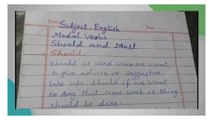 Date
Subject. English
Modal Verbs
Should and Must
Should:
Should is used when we want
to give advice or suggestion.
We use should if we want
to say that some work or thing
should be done